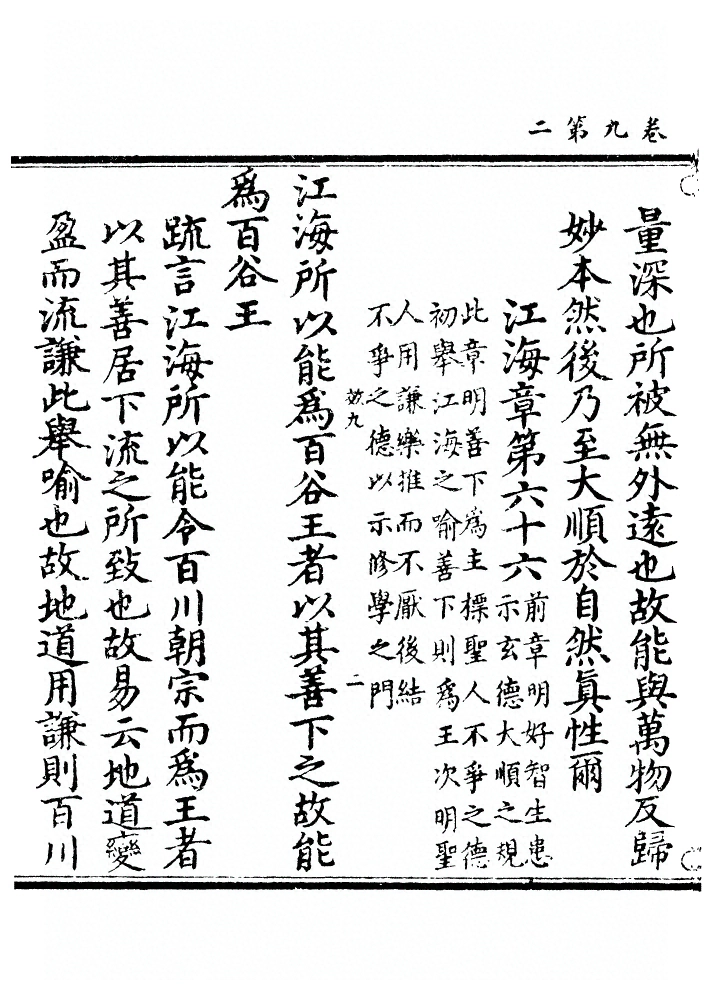 卷九第二
量深也所被無外遠也故能與萬物反歸
妙本然後乃至大順於自然真性爾
江海章第六十六
前章明好智生患
示玄德大順之規
此章明善下為主標聖人不爭之德
初舉江海之喻善下則為王次明聖
人用謙樂推而不厭後結
不爭之德以示修學之門
效九
二
江海所以能為百谷王者以其善下之故能
為百谷王
疏言江海所以能令百川朝宗而為王者
以其善居下流之所致也故易云地道變
盈而流謙此舉喻也故地道用謙則百川